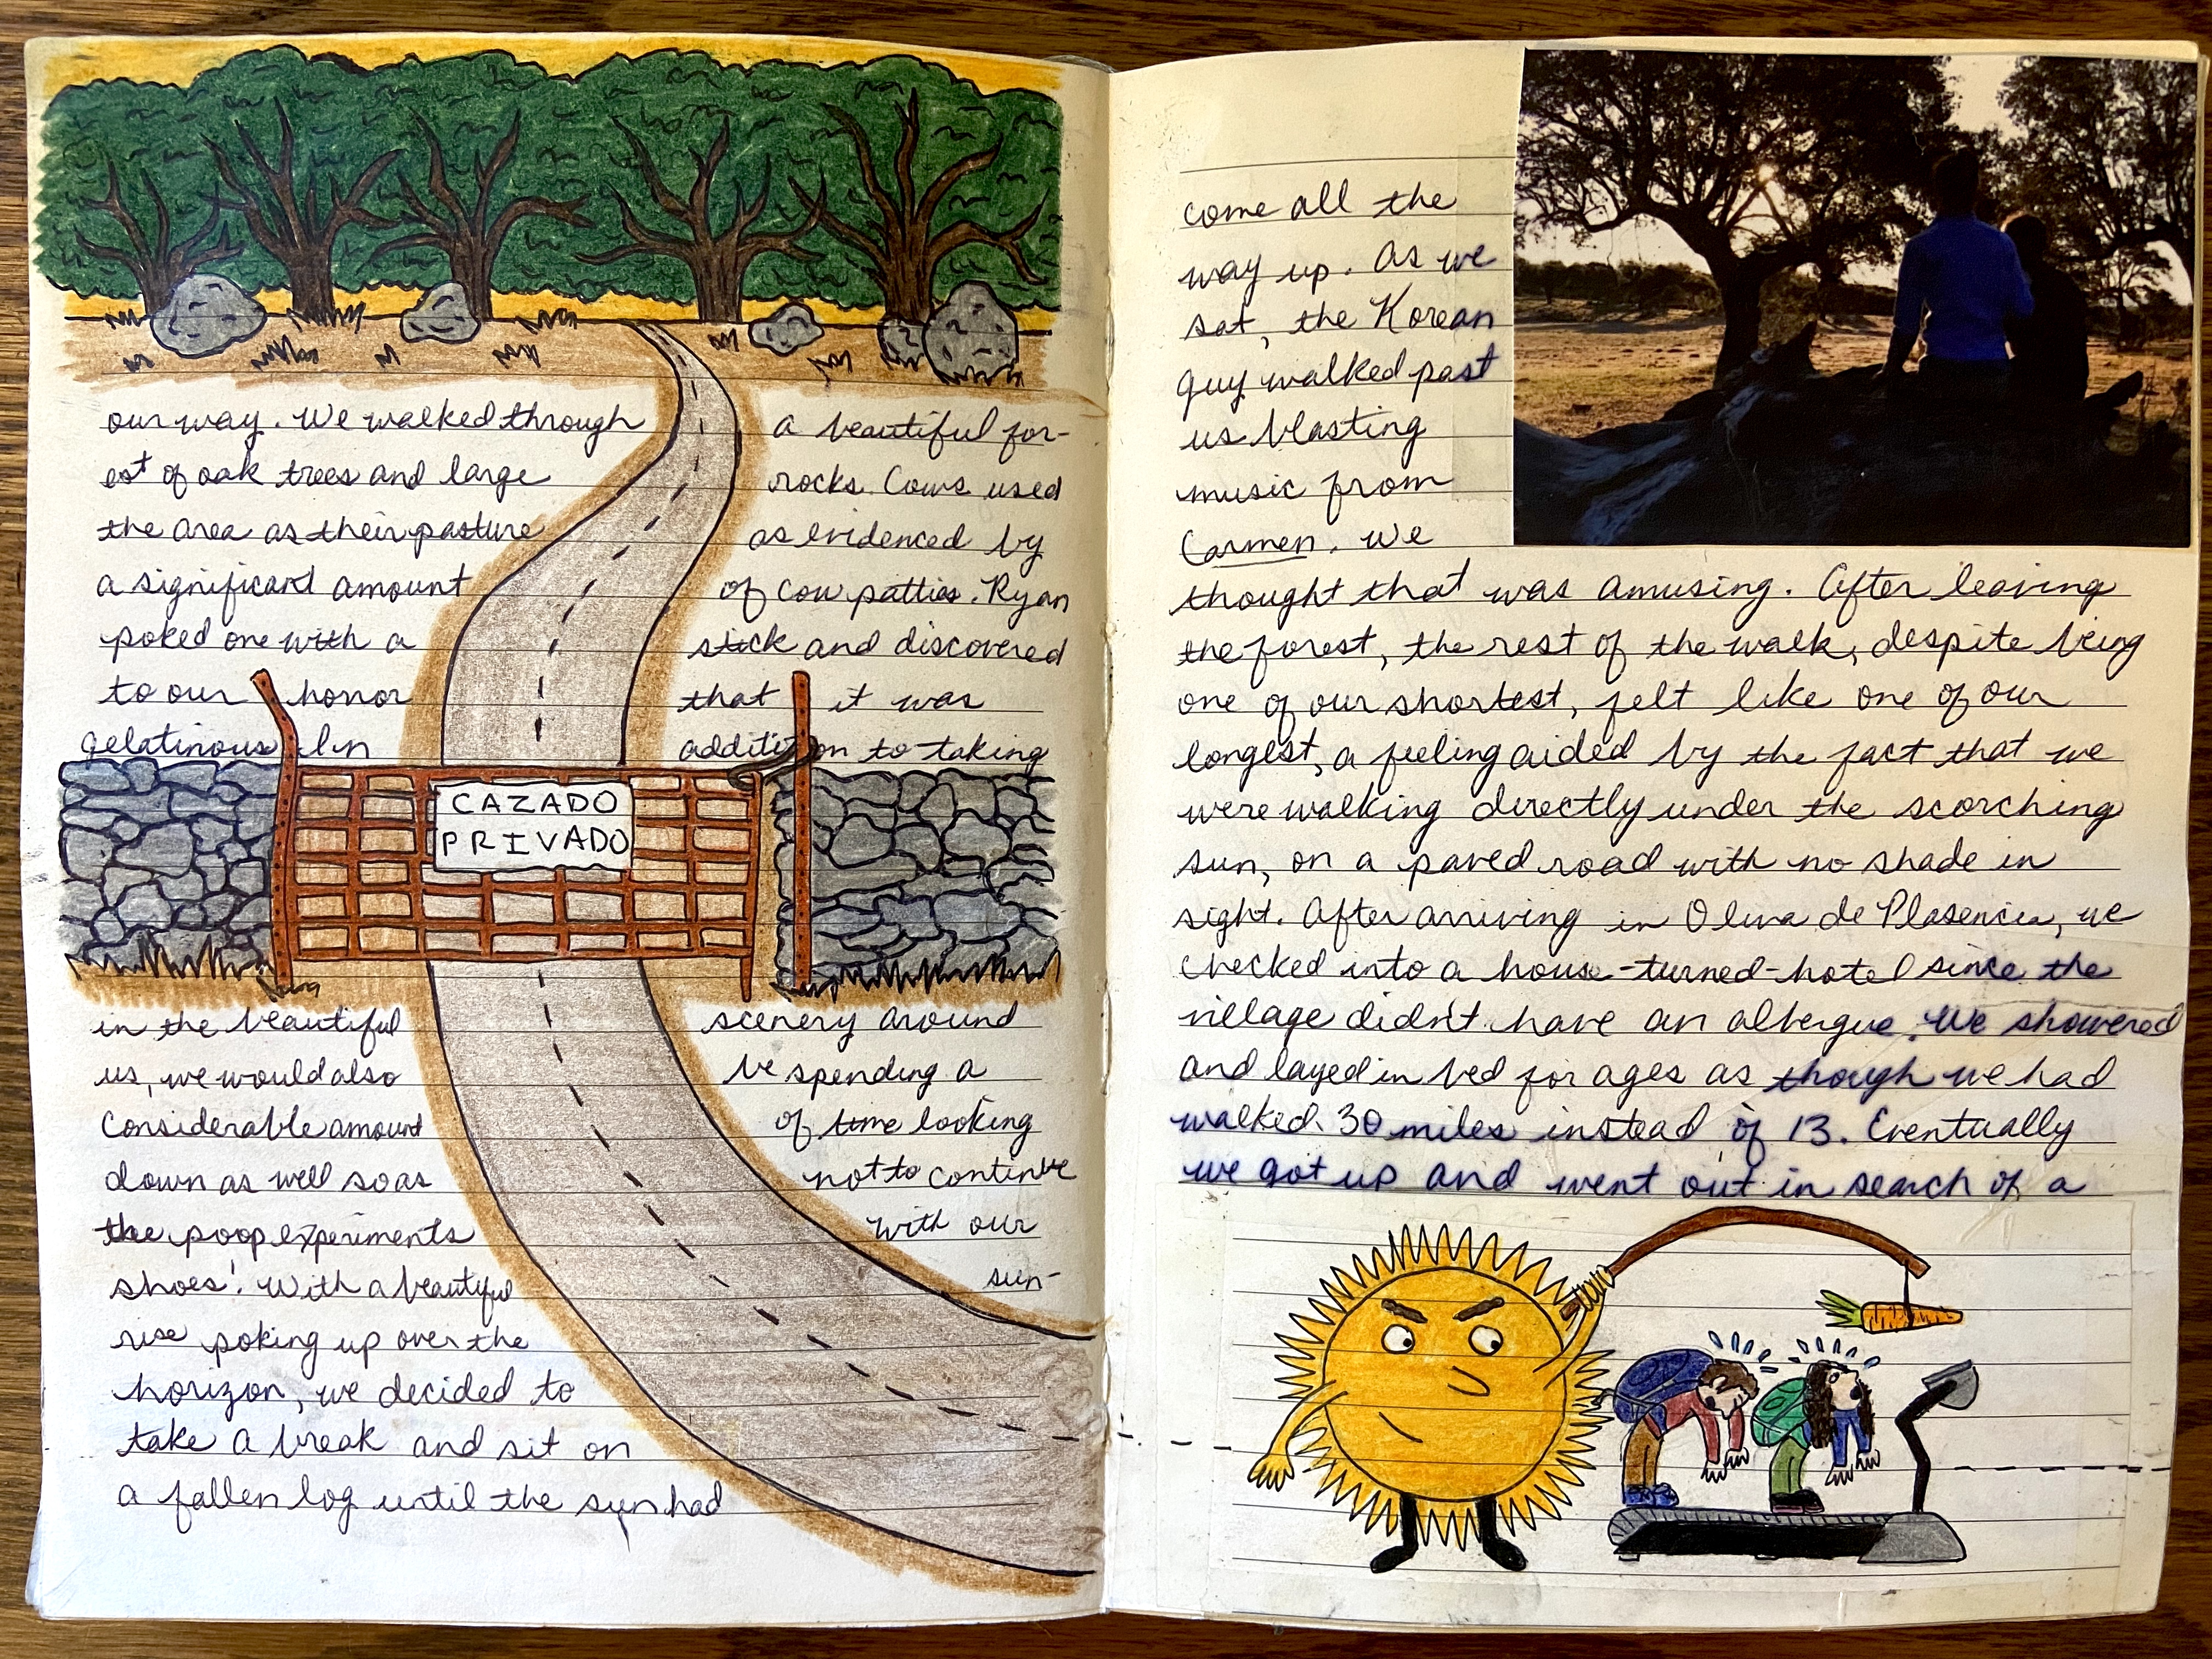 our way. We walked through a beautiful for-
est of oak trees and large rocks. Cows used
the area as their pasture as evidenced by
a significant amount of cow patties. Ryan
poked one with a stick and discovered
to our honor that it was
gelatinous. In addition to taking
CAZADO
PRIVADO
in the beautiful scenery around
us, we would also be spending a
considerable amount of time looking
down as well so as not to continue
the poop experiments with our
shoes! With a beautiful sun-
rise poking up over the
horizon, we decided to
take a break and sit on
a fallen log until the sun had
come all the
way up. As we
sat, the Korean
guy walked past
us blasting
music from
Carmen. We
thought that was amusing. After leaving
the forest, the rest of the walk, despite being
one of our shortest, felt like one of our
longest, a feeling aided by the fact that we
were walking directly under the scorching
sun, on a paved road with no shade in
sight. After arriving in Oliva de Plasencia, we
checked into a house-turned-hotel since the
village didn't have an albergue. We showered
and layed in bed for ages as though we had
walked 30 miles instead of 13. Eventually
we got up and went out in search of a